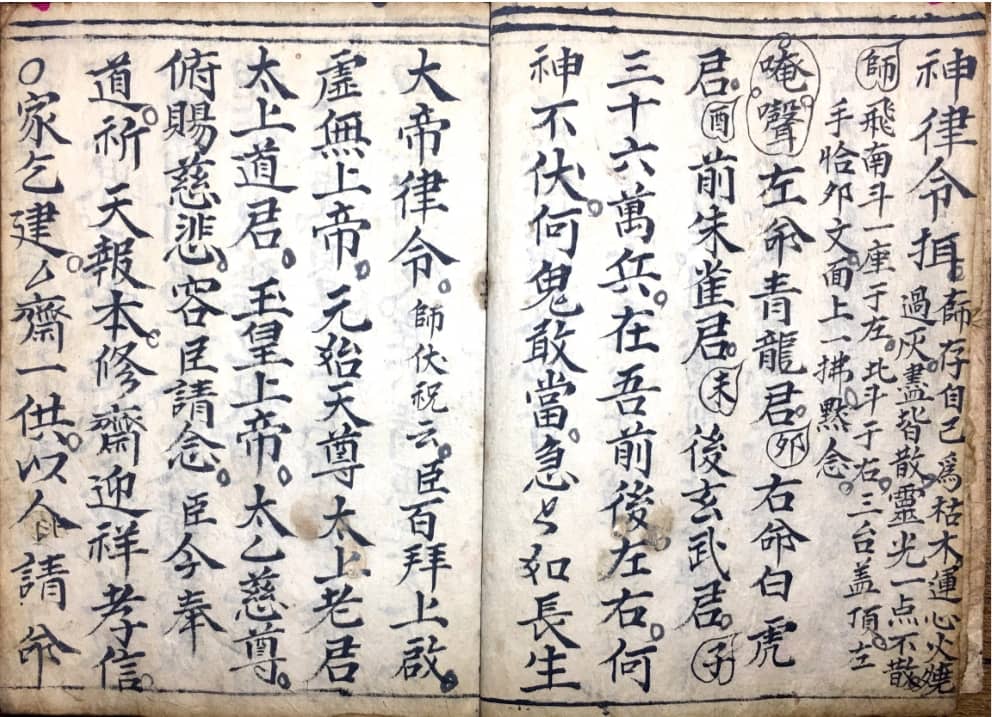 神律令抇師存自己為枯木運心火燒
過灰盡皆散靈光一点不散
師飛南斗一座于左北斗于右三台盖頂左
手恰夘文面上一拂黙念
唵聲左命青龍君夘右命白虎
君酉前朱雀君未後玄武君子
三十六萬兵在吾前後左右何
神不伏何鬼敢當急〻如長生
大帝律令師伏祝云臣百拜上啟
虛無上帝元始天尊太上老君
太上道君玉皇上帝太乙慈尊
俯賜慈悲容臣請念臣今奉
道祈天報本修齋迎祥孝信
○家乞建厶齋一供以今請命